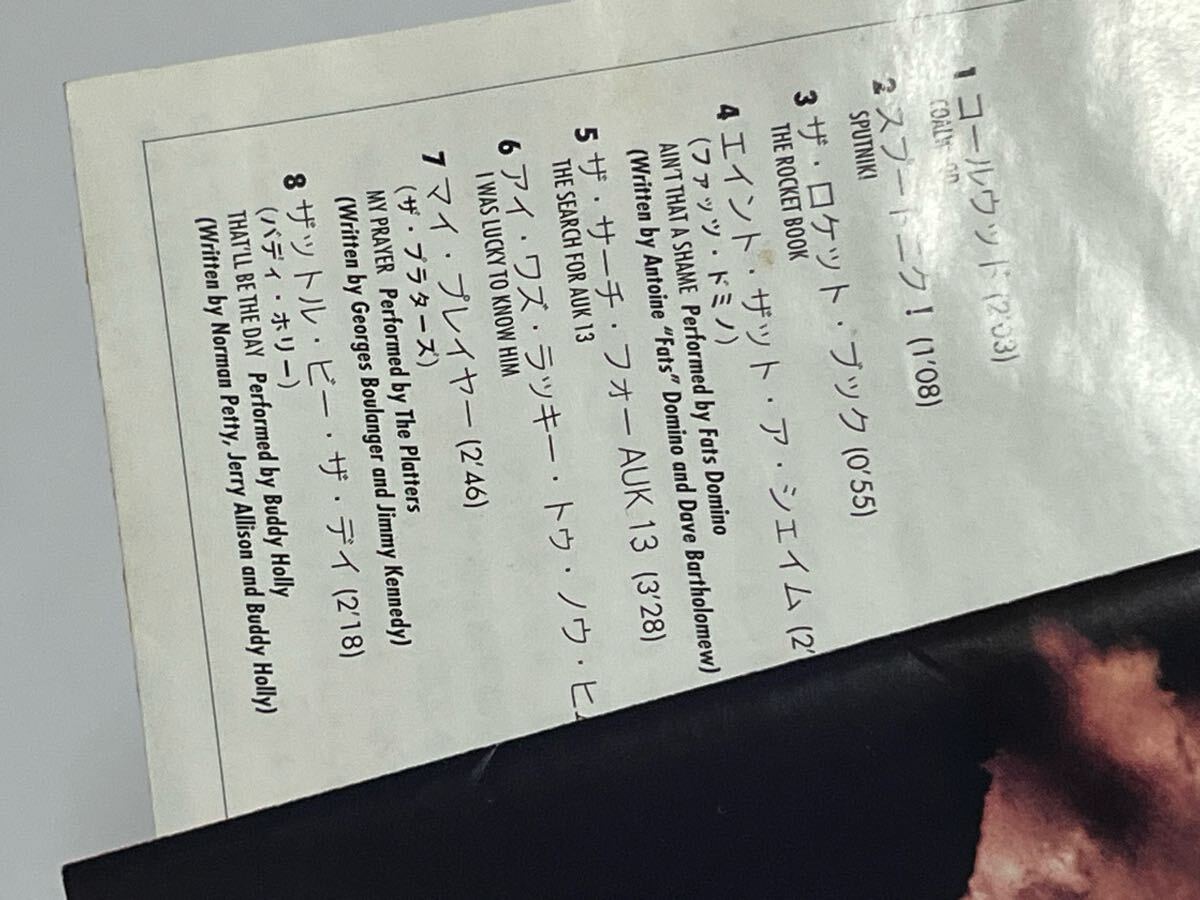 1 コールウッド (2'03)
2 スプートニク! (1'08)
SPUTNIK!
3 ザ・ロケット・ブック (0'55)
THE ROCKET BOOK
4 エイント・ザット・ア・シェイム (2'
(ファッツ・ドミノ)
AIN'T THAT A SHAME Performed by Fats Domino
(Written by Antoine "Fats" Domino and Dave Bartholomew)
5 ザ・サーチ・フォー AUK 13 (3'28)
THE SEARCH FOR AUK 13
6 アイ・ワズ・ラッキー・トゥ・ノウ・ヒ
I WAS LUCKY TO KNOW HIM
7 マイ・プレイヤー (2'46)
(ザ・プラターズ)
MY PRAYER Performed by The Platters
(Written by Georges Boulanger and Jimmy Kennedy)
8 ザットル・ビー・ザ・デイ (2'18)
(バディ・ホリー)
THAT'LL BE THE DAY Performed by Buddy Holly
(Written by Norman Petty, Jerry Allison and Buddy Holly)